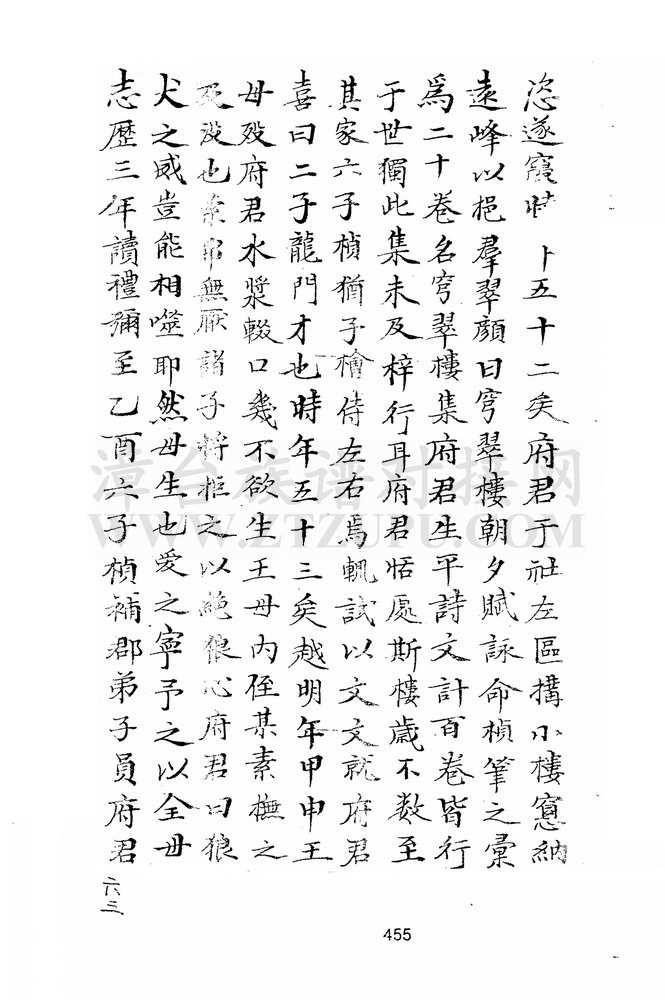 恣遂窺時卜五十二矣府君于社左區搆小樓窻納
遠峰以挹羣翠顏曰穹翠樓朝夕賦詠命楨筆之彙
爲二十卷名穹翠樓集府君生平詩文計百卷皆行
于世獨此集未及梓行耳府君恬處斯樓歲不数至
其家六子楨猶子檜侍左右焉輒試以文文就府君
喜曰二子龍門才也時年五十三矣越明年甲申王
母殁府君水漿輟口幾不欲生王母内侄某素撫之
及没也索帛無厭諸子將拒之以絶狼心府君曰狼
犬之威豈能相噬耶然母生也愛之寧予之以全母
志歷三年讀禮彌至乙酉六子楨補郡弟子員府君
六三
455
漳台族谱对接网
WWW.ZTZUPU.COM